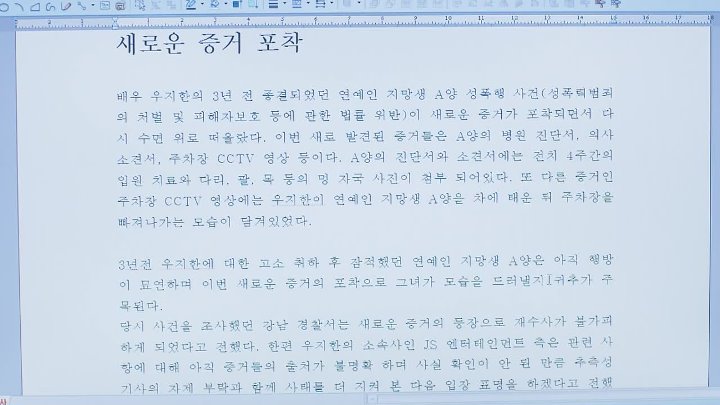 새로운 증거 포착
배우 우지한의 3년 전 종결되었던 연예인 지망생 A양 성폭행 사건(성폭력범죄
의 처벌 및 피해자보호 등에 관한 법률 위반)이 새로운 증거가 포착되면서 다
시 수면 위로 떠올랐다. 이번 새로 발견된 증거들은 A양의 병원 진단서, 의사
소견서, 주차장 CCTV 영상 등이다. A양의 진단서와 소견서에는 전치 4주간의
입원 치료와 다리, 팔, 목 등의 멍 자국 사진이 첨부 되어있다. 또 다른 증거인
주차장 CCTV 영상에는 우지한이 연예인 지망생 A양을 차에 태운 뒤 주차장을
빠져나가는 모습이 담겨있었다.
3년전 우지한에 대한 고소 취하 후 잠적했던 연예인 지망생 A양은 아직 행방
이 묘연하며 이번 새로운 증거의 포착으로 그녀가 모습을 드러낼지 귀추가 주
목된다.
당시 사건을 조사했던 강남 경찰서는 새로운 증거의 등장으로 재수사가 불가피
하게 되었다고 전했다. 한편 우지한의 소속사인 JS 엔터테인먼트 측은 관련 사
항에 대해 아직 증거들의 출처가 불명확 하며 사실 확인이 안 된 만큼 추측성
기사의 자제 부탁과 함께 사태를 더 지켜 본 다음 입장 표명을 하겠다고 전했